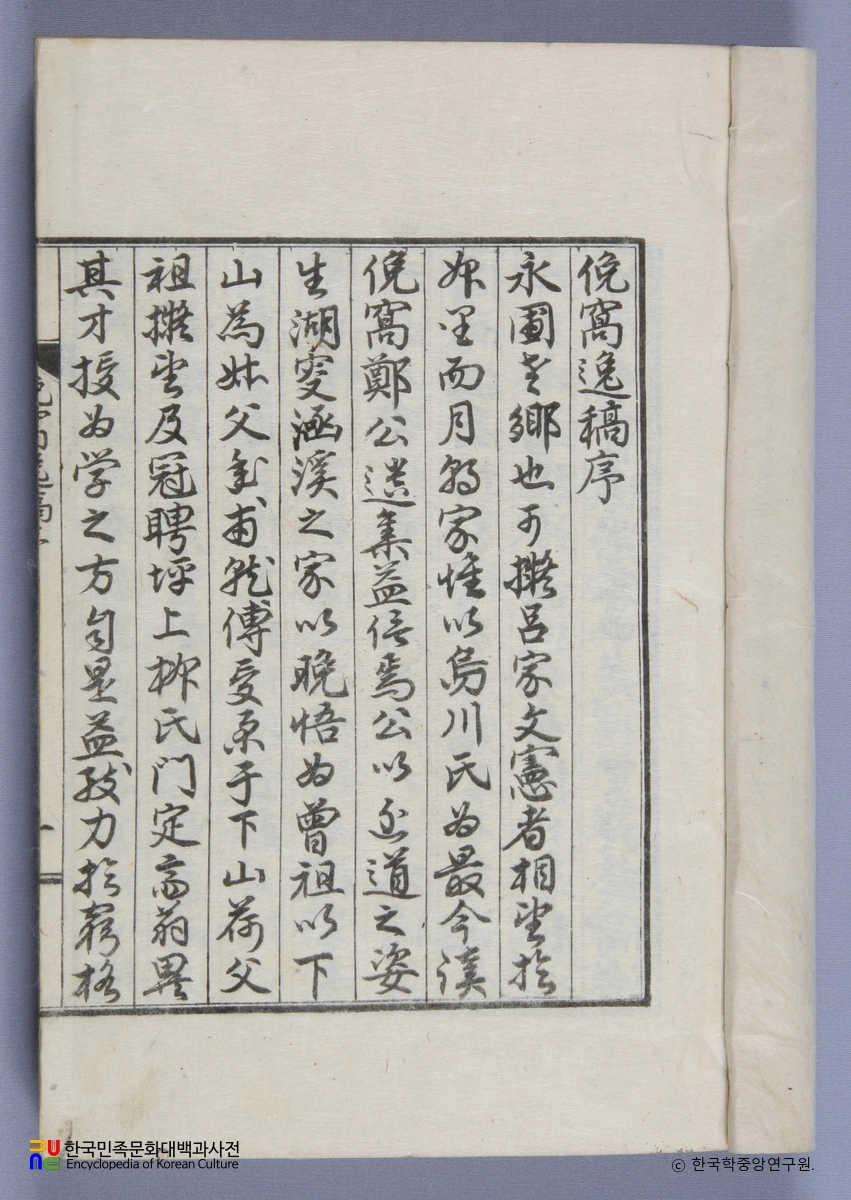 俛窩逸稿序
永圖鄉也可擬呂家文憲者相望於
里而月家惟以烏川氏為最今讀
俛窩鄭公遺集益信焉公以近道之姿
生湖叟涵溪之家以晚悟為曾祖以下
山為父年甫就傅受于下山荷父
祖擬望及冠聘坪上柳氏門定齋翁異
其才授为学之方自是益致力於窮格
한국민족문화대백과사전
Encyclopedia of Korean Culture
ⓒ 한국학중앙연구원.